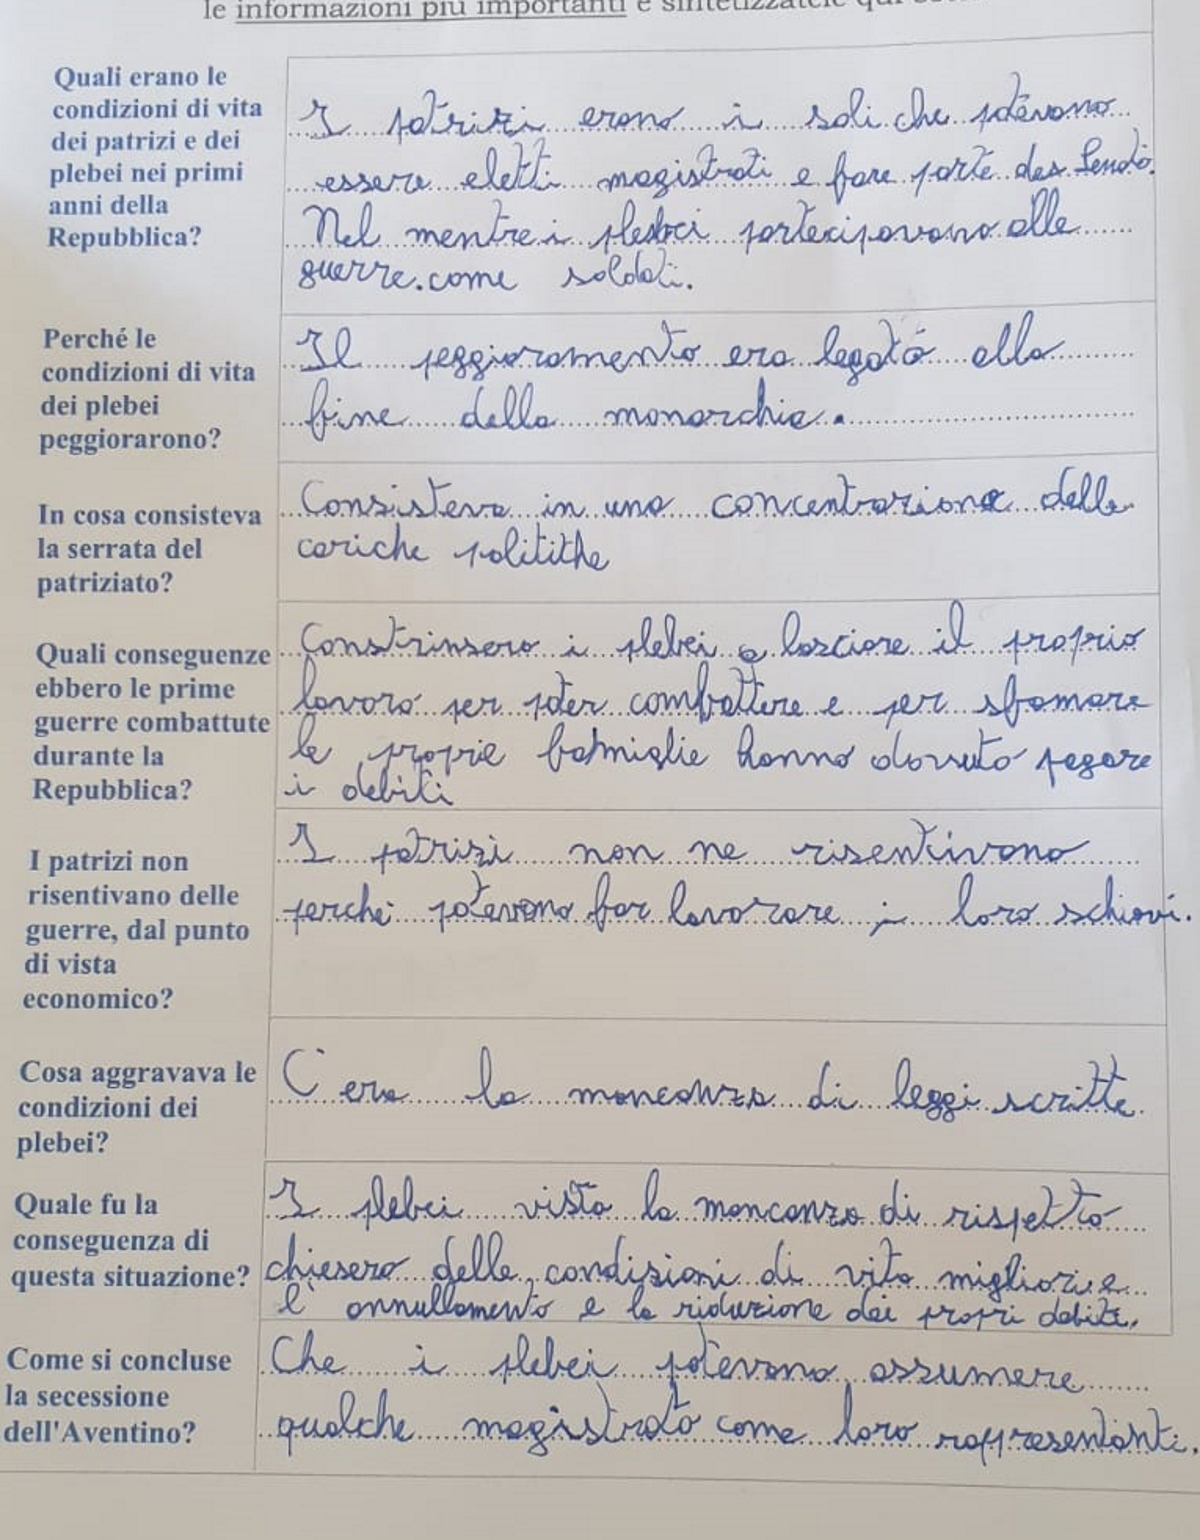 le informazioni più importanti e sintetizzatele qui
Quali erano le
condizioni di vita
dei patrizi e dei
plebei nei primi
anni della
Repubblica?
I patrizi erano i soli che potevano
essere eletti magistrati e fare parte des Senato.
Nel mentre i plebei partecipavano alle
guerre come soldati.
Perché le
condizioni di vita
dei plebei
peggiorarono?
Il peggioramento era legato alla
fine della monarchia.
In cosa consisteva
la serrata del
patriziato?
Consisteva in una concentrazione delle
cariche politithe
Quali conseguenze
ebbero le prime
guerre combattute
durante la
Repubblica?
Constrinsero i plebei a lasciare il proprio
lavoro per poter combattere e per sfamare
le proprie famiglie hanno dovuto pagare
i debiti
I patrizi non
risentivano delle
guerre, dal punto
di vista
economico?
I patrizi non ne risentivano
perché potevano far lavorare i loro schiavi.
Cosa aggravava le
condizioni dei
plebei?
C'era la mancanza di leggi scritte.
Quale fu la
conseguenza di
questa situazione?
I plebei vista la mancanza di rispetto
chiesero delle condizioni di vita migliori e
l'annullamento e la riduzione dei propri debiti.
Come si concluse
la secessione
dell'Aventino?
Che i plebei potevano assumere
qualche magistrato come loro rappresentanti.